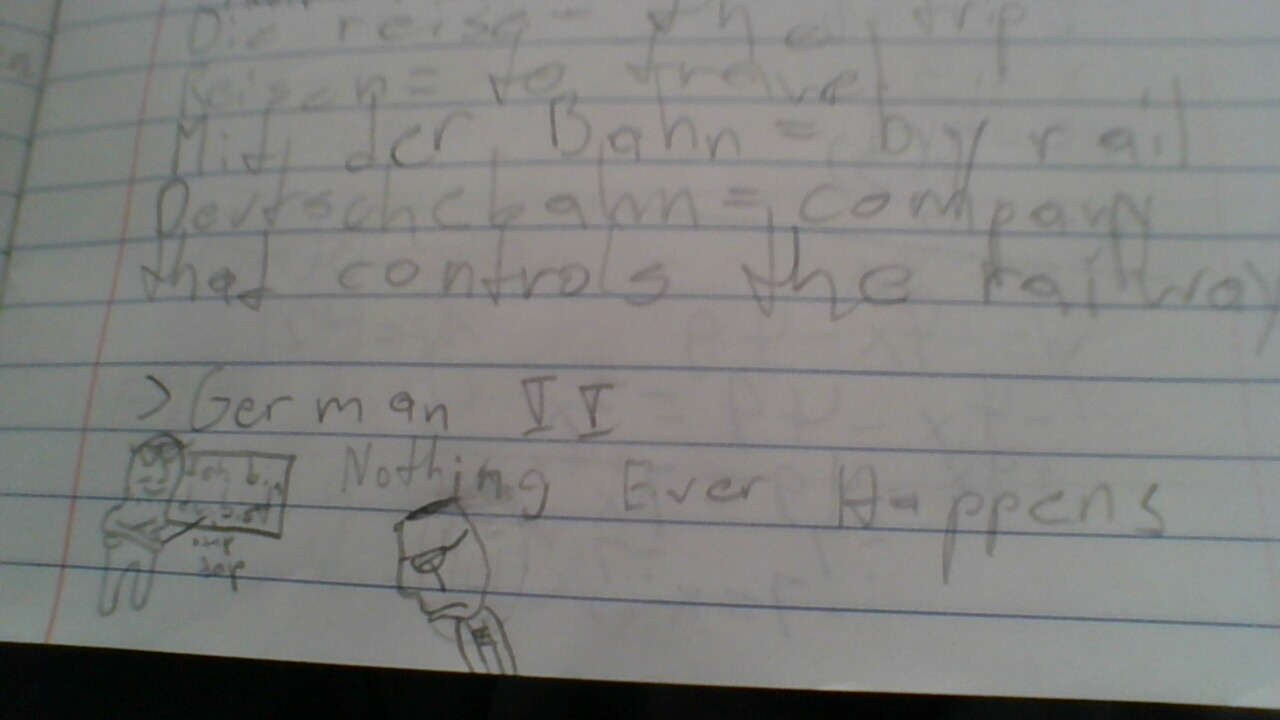 Die reise - the trip
Reisen = to travel
Mit der Bahn = by rail
Deutschebahn = company
that controls the railway
> German II
Nothing Ever Happens